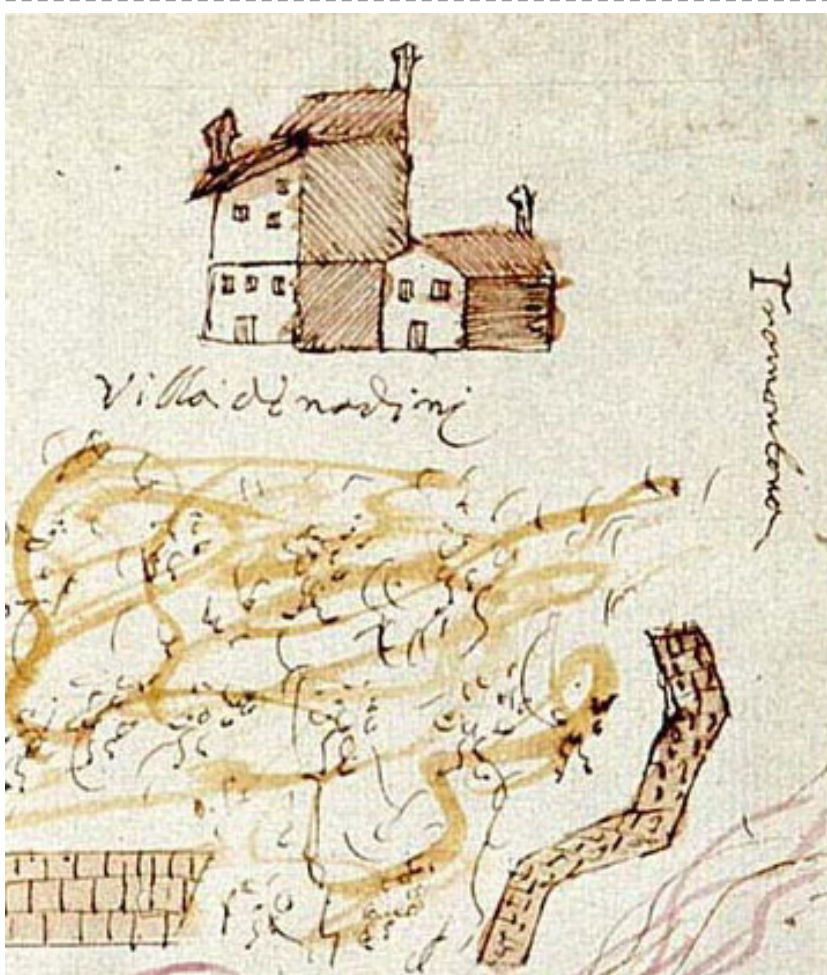 Villa di nadini
Tramontana